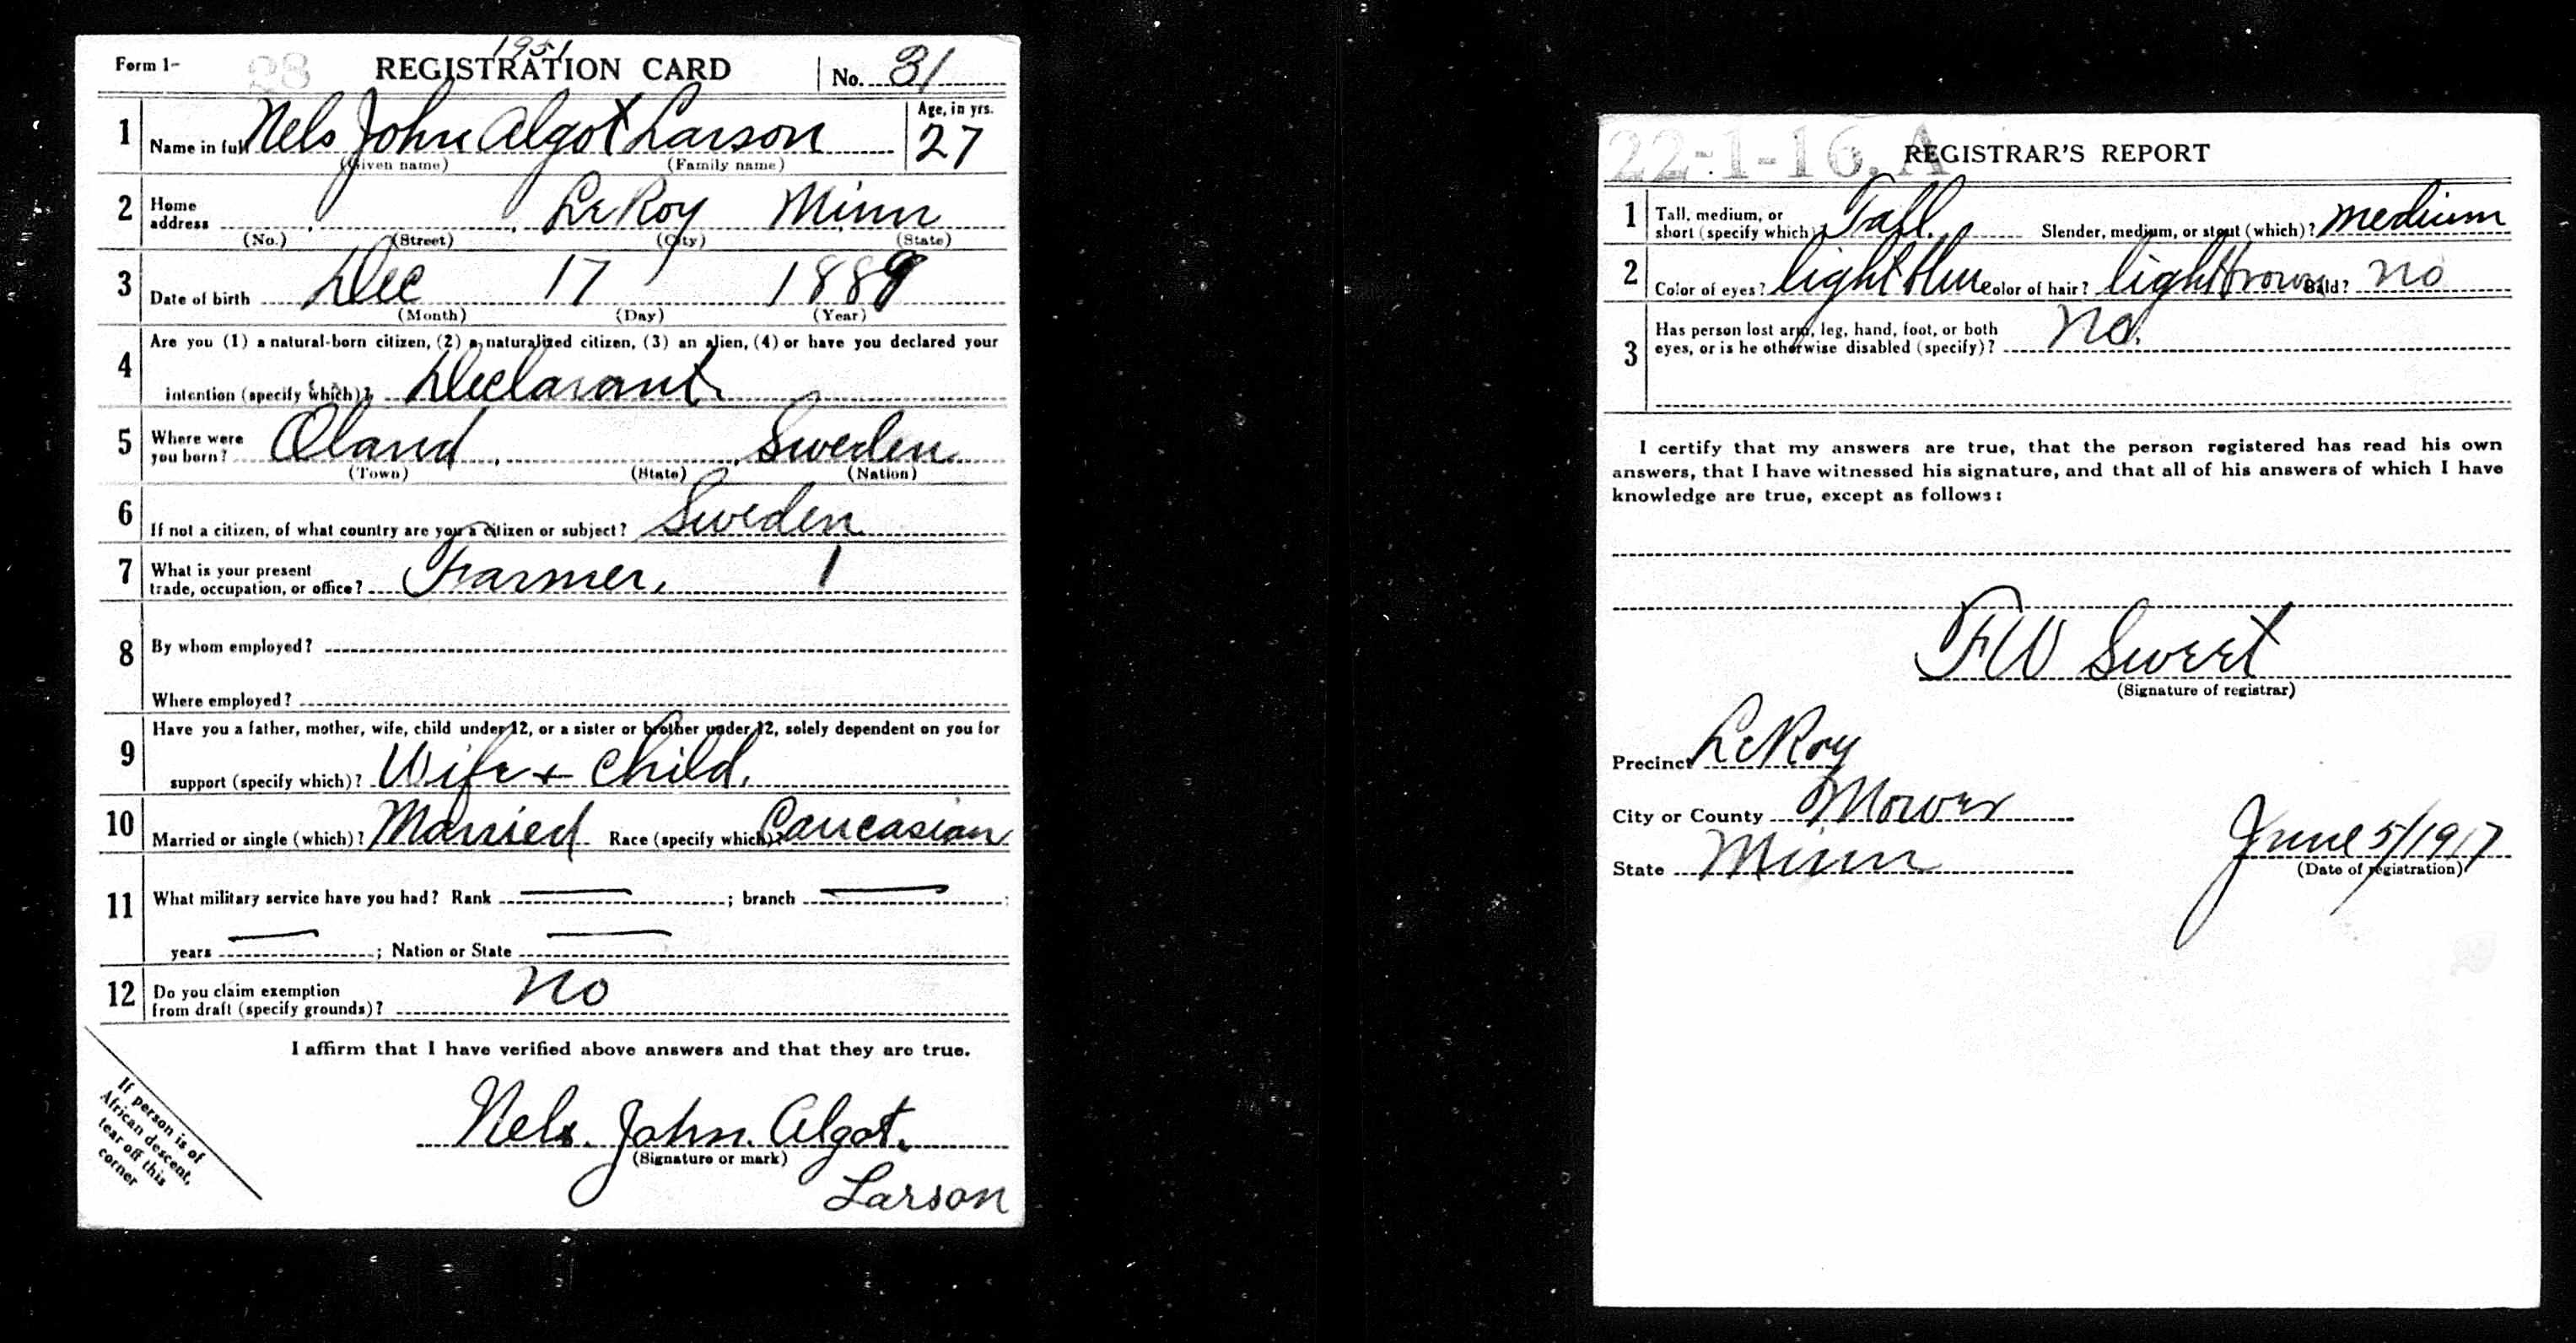 1951
Form 1- 28 REGISTRATION CARD No. 31
1 Name in full Nels John Algot Larson Age, in yrs. 27
(Given name) (Family name)
2 Home address LeRoy Minn
(No.) (Street) (City) (State)
3 Date of birth Dec 17 1889
(Month) (Day) (Year)
4 Are you (1) a natural-born citizen, (2) a naturalized citizen, (3) an alien, (4) or have you declared your
intention (specify which)? Declarant.
5 Where were you born? Oland, Sweden
(Town) (State) (Nation)
6 If not a citizen, of what country are you a citizen or subject? Sweden
7 What is your present trade, occupation, or office? Farmer, 1
8 By whom employed?
Where employed?
9 Have you a father, mother, wife, child under 12, or a sister or brother under 12, solely dependent on you for
support (specify which)? Wife + Child.
10 Married or single (which)? Married Race (specify which)? Caucasian
11 What military service have you had? Rank — ; branch — ;
years — ; Nation or State —
12 Do you claim exemption from draft (specify grounds)? No
I affirm that I have verified above answers and that they are true.
Nels. John. Algot.
(Signature or mark)
Larson
If person is of
African descent,
tear off this
corner
22-1-16. A REGISTRAR'S REPORT
1 Tall, medium, or short (specify which) Tall. Slender, medium, or stout (which)? medium
2 Color of eyes? light blue Color of hair? light brown Bald? No
3 Has person lost arm, leg, hand, foot, or both
eyes, or is he otherwise disabled (specify)? No.
I certify that my answers are true, that the person registered has read his own
answers, that I have witnessed his signature, and that all of his answers of which I have
knowledge are true, except as follows:
FW Sweet
(Signature of registrar)
Precinct LeRoy
City or County Mower
State Minn June 5/1917
(Date of registration)